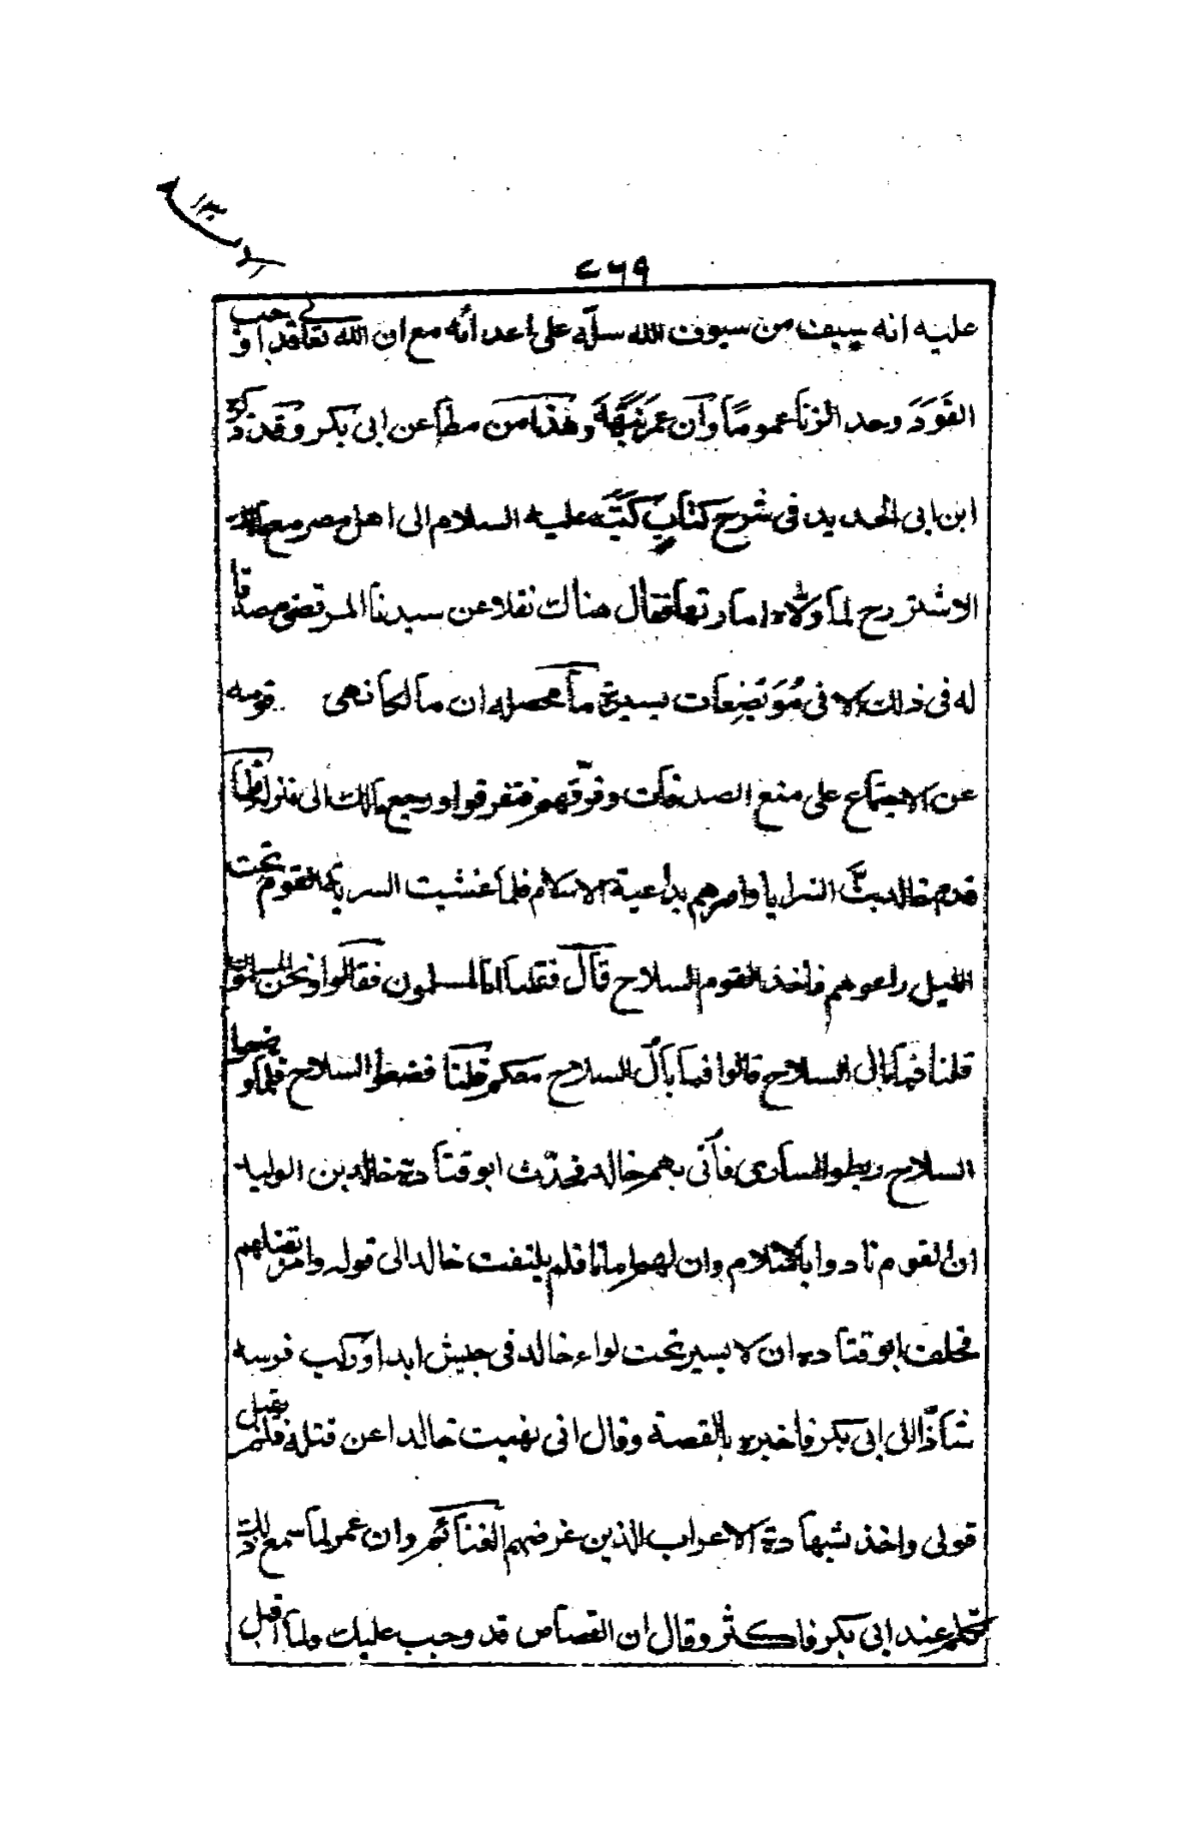 ٧٦٩
عليه انه سيف من سيوف الله سلّه على اعدائه مع ان الله تعالى قد اوجب
القَوَدَ وحد الزنا عمومًا وان عمر نَبَّهَهُ وهذا من مطاعن ابى بكر وقد ذكره
ابن ابى الحديد فى شرح كتابٍ كتبه عليه السلام الى اهل مصر مع مالك
الاشتر رح لما ولاه امارتها فقال هناك نقلا عن سيدنا المرتضى مصدقا
له فى ذلك الا فى مُوَيضِعات يسيرة ما محصله ان مالكا نهى قومه
عن الاجتماع على منع الصدقات وفرّقهم فتفرقوا ورجع مالك الى منزله فلما
قدم خالد بثَّ السرايا وامرهم بداعية الاسلام فلما غشيت السرية القوم تحت
الليل راعوهم فاخذ القوم السلاح قال فقلنا انا لمسلمون فقالوا ونحن المسلمون
قلنا فما بال السلاح قالوا فما بال السلاح معكم قلنا فضعوا السلاح فلما وضعوا
السلاح ربطوا اسارى فاتى بهم خالد فحدّث ابو قتادة خالد بن الوليد
ان القوم نادوا بالاسلام وان لهم امانا فلم يلتفت خالد الى قوله وامر بقتلهم
فحلف ابو قتادة ان لا يسير تحت لواء خالد فى جيش ابدا وركب فرسه
شاذّا الى ابى بكر فاخبره بالقصة وقال انى نهيت خالدا عن قتله فلم يقبل
قولى واخذ بشهادة الاعراب الذين غرضهم الغنائم وان عمر لما سمع ذلك
تكلم عند ابى بكر فاكثر وقال ان القصاص قد وجب عليك ولما اقبل